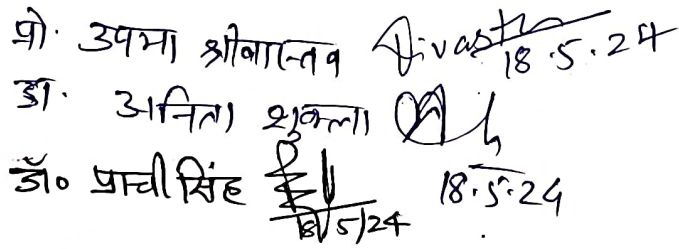 प्रो. उपमा श्रीवास्तव Srivastava 18.5.24
डा. अनिता शुक्ला
डॉ० प्राची सिंह 18/5/24 18.5.24